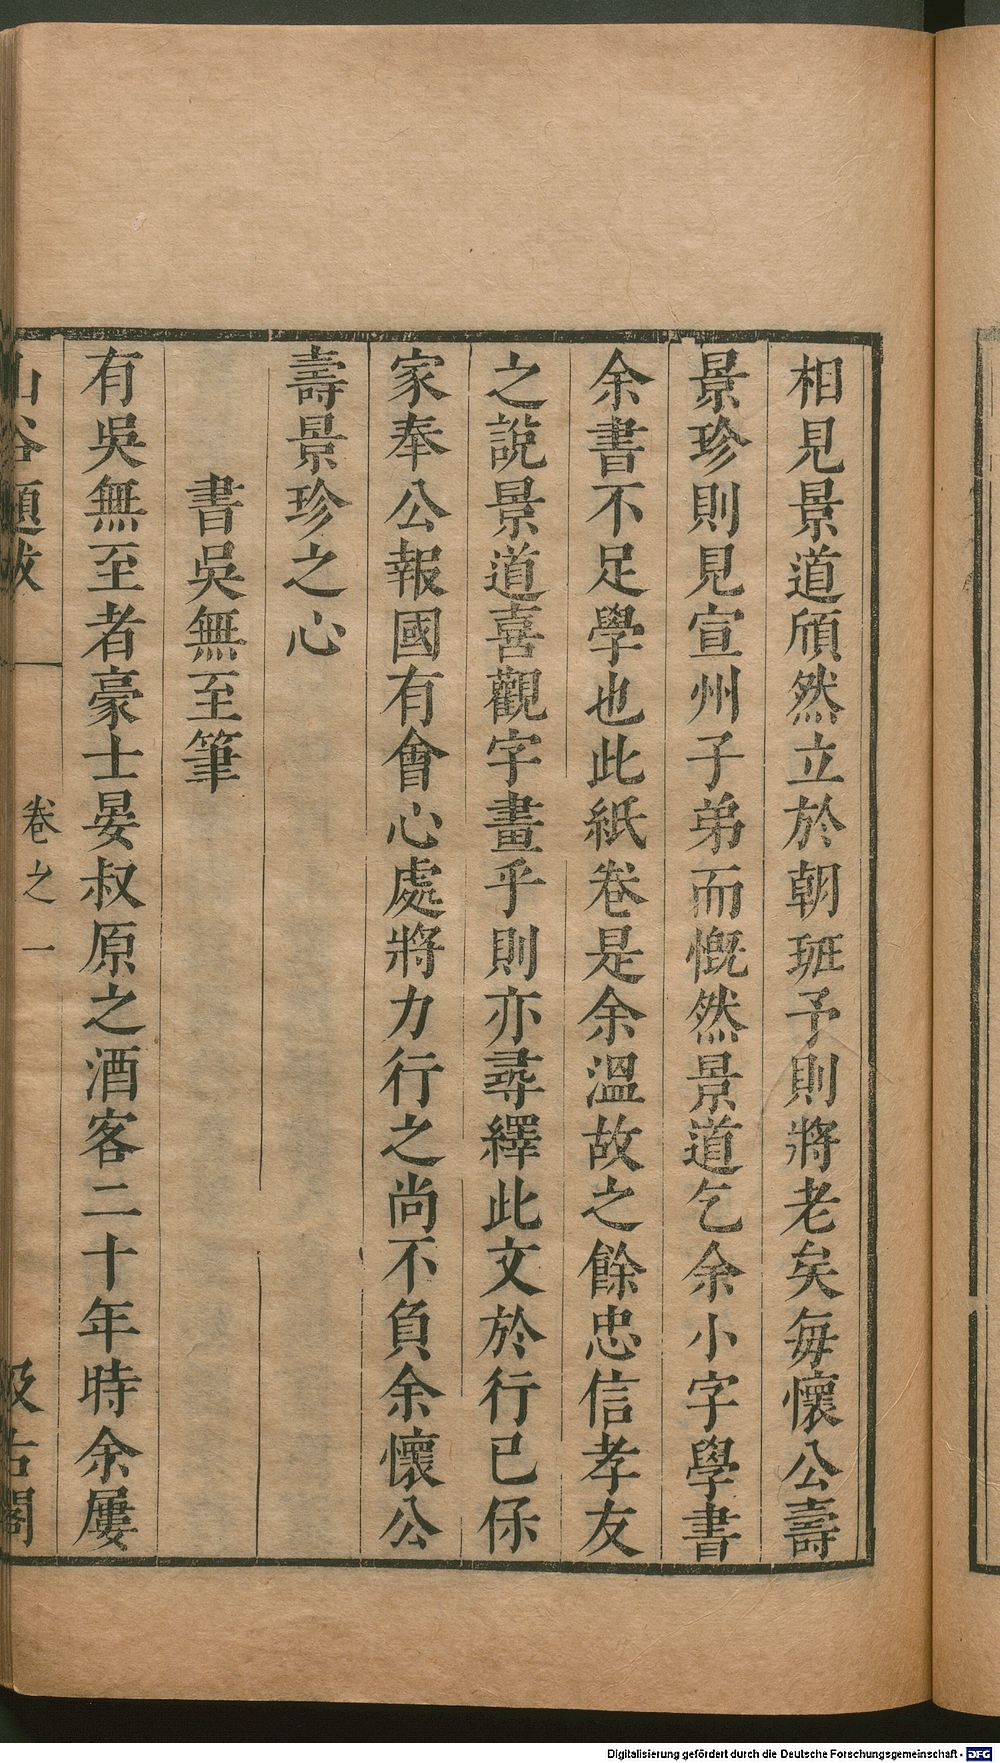 相見景道頎然立於朝班予則將老矣每懷公壽
景珍則見宣州子弟而慨然景道乞余小字學書
余書不足學也此紙卷是余溫故之餘忠信孝友
之說景道喜觀字畫乎則亦尋繹此文於行已保
家奉公報國有會心處將力行之尚不負余懷公
壽景珍之心
書吳無至筆
有吳無至者豪士晏叔原之酒客二十年時余屢
山谷題跋
卷之一
汲古閣
Digitalisierung gefördert durch die Deutsche Forschungsgemeinschaft - DFG